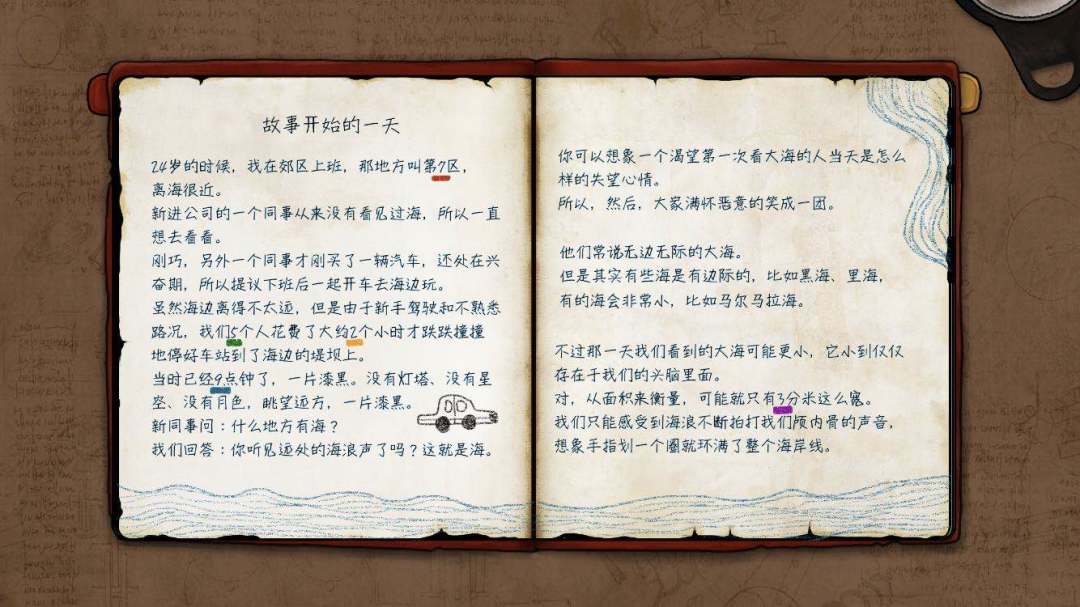 故事开始的一天
24岁的时候，我在郊区上班，那地方叫第7区，
离海很近。
新进公司的一个同事从来没有看见过海，所以一直
想去看看。
刚巧，另外一个同事才刚买了一辆汽车，还处在兴
奋期，所以提议下班后一起开车去海边玩。
虽然海边离得不太远，但是由于新手驾驶和不熟悉
路况，我们5个人花费了大约2个小时才跌跌撞撞
地停好车站到了海边的堤坝上。
当时已经9点钟了，一片漆黑。没有灯塔、没有星
空、没有月色，眺望远方，一片漆黑。
新同事问：什么地方有海？
我们回答：你听见远处的海浪声了吗？这就是海。
你可以想象一个渴望第一次看大海的人当天是怎么
样的失望心情。
所以，然后，大家满怀恶意的笑成一团。
他们常说无边无际的大海。
但是其实有些海是有边际的，比如黑海、里海，
有的海会非常小，比如马尔马拉海。
不过那一天我们看到的大海可能更小，它小到仅仅
存在于我们的头脑里面。
对，从面积来衡量，可能就只有3分米这么宽。
我们只能感受到海浪不断拍打我们颅内骨的声音，
想象手指划一个圈就环满了整个海岸线。